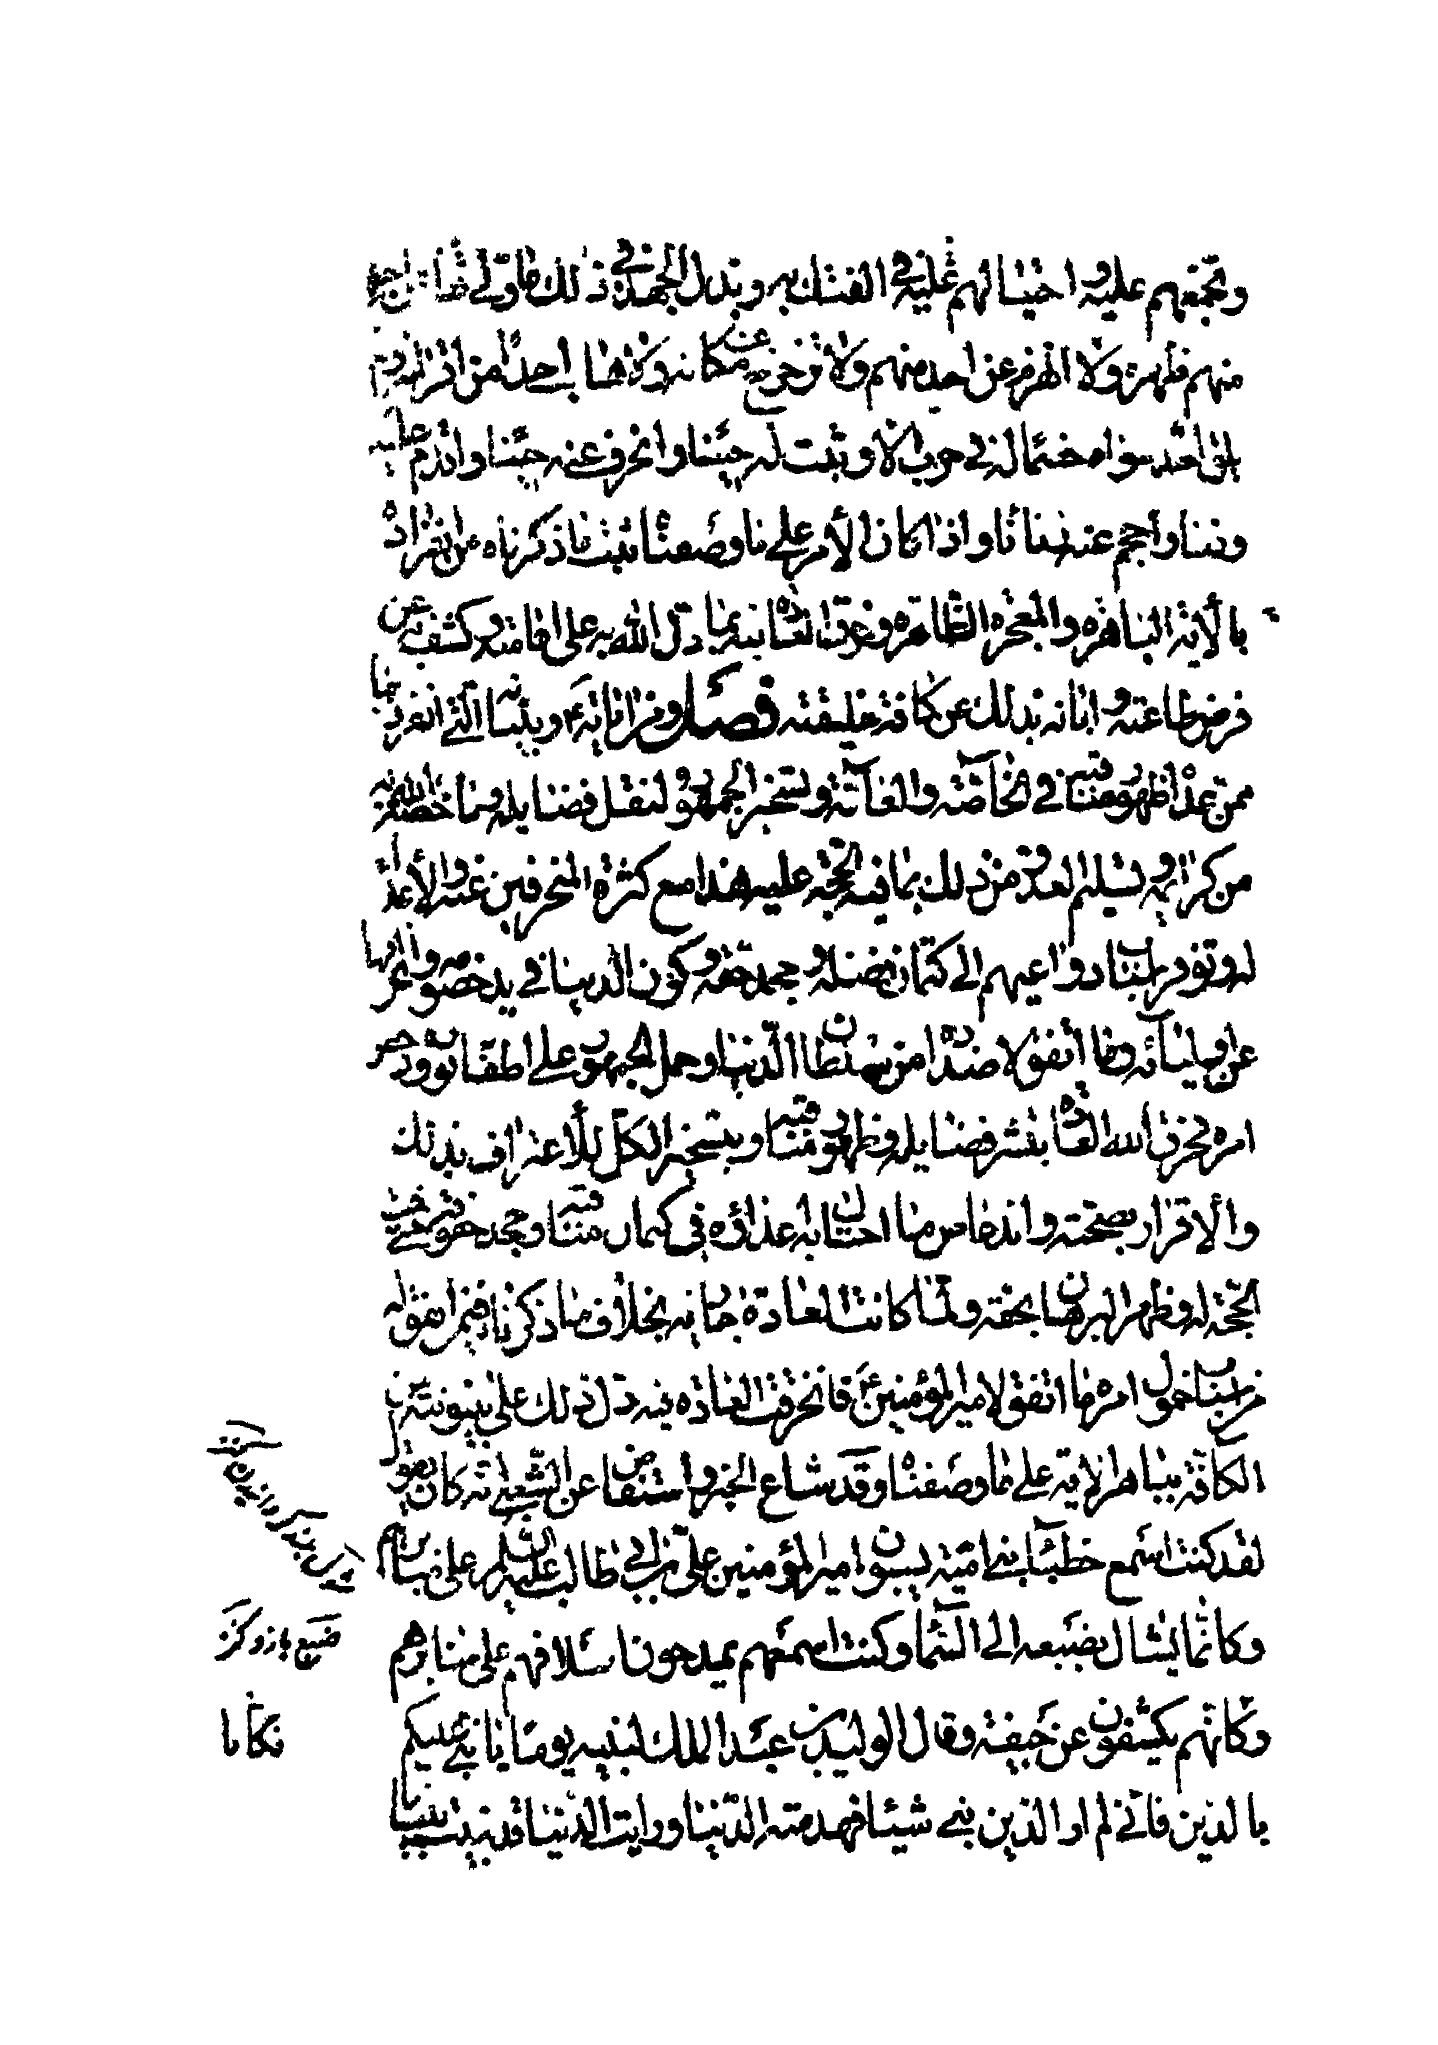 وتجمعهم عليه و احتيالهم عليه في الفتك به وبذل الجهد في ذلك ما ولى قط عن احد
منهم ظهره ولا انهزم عن احد منهم ولا تزحزح عن مكانه ولا هاب احدا من اقرانه و
يلق احد سواه خصما له في حرب الا وثبت له حينا وانحرف عنه حينا واقدم عليه
وقتا واحجم عنه زمانا واذا كان الامر على ما وصفناه ثبت ما ذكرناه من انفراده
بالآية الباهرة والمعجزة الظاهرة وخرق العادة فيه بما دل الله به على امامته وكشف به عن
فرض طاعته و ابانه بذلك عن كافة خليقته فصل ومن آياته ع وبيناته التي انفرد بها
ممن عداه ظهور مناقبه في الخاصة والعامة وتسخير الجمهور لنقل فضايله وما خصه الله به
من كرايمه وتسليم العدو من ذلك بما فيه الحجة عليه هذا مع كثرة المنحرفين عنه والاعداء
له وتوفر اسباب دواعيهم الى كتمان فضله وجحد حقه وكون الدنيا في يد خصومه وانحرافها
عن اوليائه وما اتفق لاضداده من سلطان الدنيا وحمل الجمهور على اطفاء نوره ودحض
امره فخرق الله العادة بنشر فضايله وظهور مناقبه وبتسخير الكل للاعتراف بذلك
والاقرار بصحته واندحاض ما احتال به اعداؤه في كتمان مناقبه وجحد حقوقه حتى تمت
الحجة له وظهر البرهان بحقه ولما كانت العادة جارية بخلاف ما ذكرناه فيمن اتفق له
من اسباب خمول امره ما اتفق لامير المؤمنين ع فانخرقت العادة فيه دل ذلك على بينونته من
الكافة بباهر الآية على ما وصفناه وقد شاع الخبر واستفاض عن الشعبي انه كان يقول
لقد كنت اسمع خطباء بني امية يسبون امير المؤمنين علي بن ابي طالب عليه السلم على منابرهم
وكانما يشال بضبعه الى السماء وكنت اسمعهم يمدحون اسلافهم على منابرهم
وكانهم يكشفون عن جيفة وقال الوليد بن عبد الملك لبنيه يوما يا بني عليكم
بالدين فاني لم ار الدين بنى شيئا فهدمته الدنيا ورايت الدنيا قد بنت بنيانا
ضبع بازو كنز